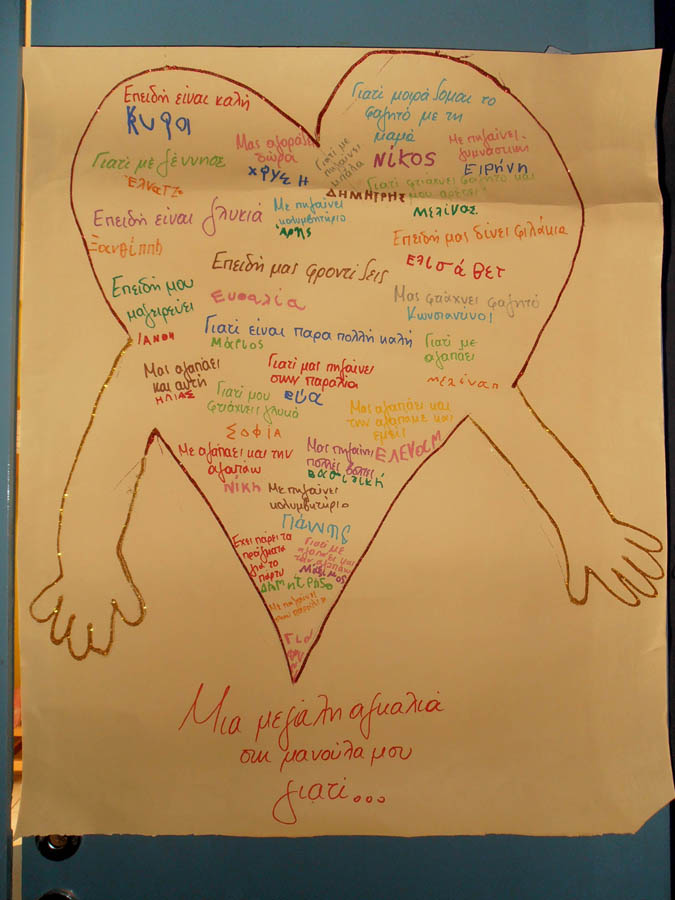 Επειδή είναι καλή
Κυρα
Γιατί μοιράζομαι το
φαγητό με τη
μαμά
Νίκος
Μας αγοράζει
δώρα
ΧΦΥΣΗ
Γιατί με
πηγαίνει
μπάλα
ΔΗΜΗΤΡΗΣ
Με πηγαίνει
γυμναστική
ΕΙΡΗΝΗ
Γιατί με γέννησε
Γιατί φτιάχνει φαγητό και
μου αρέσει
ΜελίναΣ
Επειδή είναι γλυκιά
Ξανθίππη
Με πηγαίνει
κολυμβητήριο
Άρης
Επειδή μας δίνει φιλάκια
Ελισάβετ
Επειδή μας φροντίζεις
Ευσαλία
Επειδή μου
μαγειρεύει
ΙΑΝΘΗ
Μας φτιάχνει φαγητό
Κωνσιανύνοι
Γιατί είναι παρα πολλή καλή
Μάριος
Γιατί με
αγαπάει
μελίνα
Μας αγαπάει
και αυτή
ΗΛΙΑΣ
Γιατί μας πηγαίνει
στην παραλία
εύα
Γιατί μου
φτιάχνει γλυκό
ΣΟΦΙΑ
Μας αγαπάει και
την αγαπάμε και
εμείς
ΕΛΕΝΑ Μ
Με αγαπάει και την
αγαπάω
ΝΙΚΗ
Μας πηγαίνει
πολλές βόλτες
Βασιλική
Με πηγαίνει
κολυμβητήριο
Γιάννης
Έχει πάρει τα
πράγματα
για το
πάρτυ
ΔΗΜΗΤΡΗΣ
Γιατί με
αγαπάει και
την αγαπάω
Μάξιμος
Με πηγαίνει
στην παραλία
Μια μεγάλη αγκαλιά
στη μανούλα μου
γιατί...